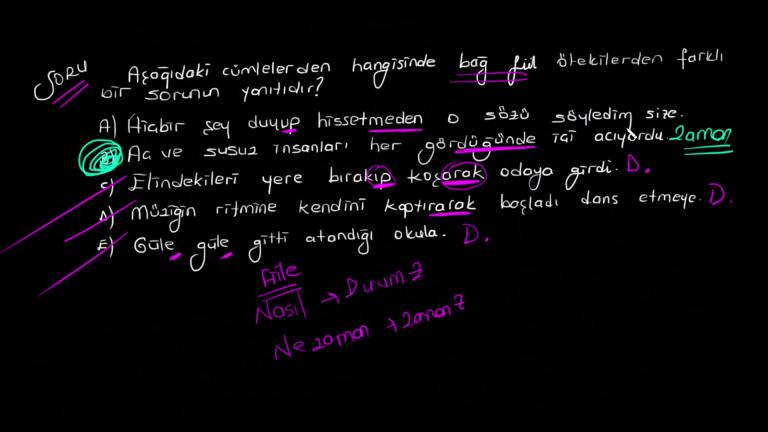 SORU Aşağıdaki cümlelerden hangisinde bağ fiil ötekilerden farklı
bir sorunun yanıtıdır?
A) Hiçbir şey duyup hissetmeden o sözü söyledim size.
B) Aç ve susuz insanları her gördüğünde içi acıyordu. Zaman
C) Elindekileri yere bırakıp koşarak odaya girdi. D.
D) Müziğin ritmine kendini kaptırarak başladı dans etmeye. D.
E) Güle güle gitti atandığı okula. D.
Fiile
Nasıl → Durum Z
Ne zaman → zaman Z